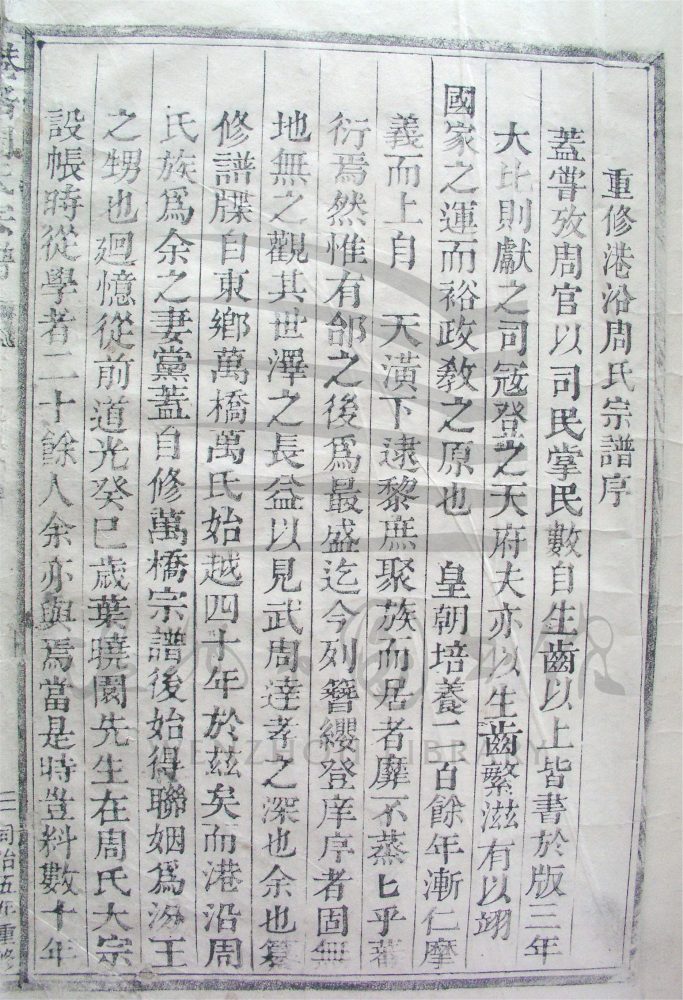 重修港沿周氏宗譜序
蓋嘗攷周官以司民掌民數自生齒以上皆書於版三年
大比則獻之司冦登之天府夫亦以生齒繁滋有以翊
國家之運而裕政教之原也　皇朝培養二百餘年漸仁摩
義而上自　天潢下逮黎庶聚族而居者靡不蒸匕乎蕃
衍焉然惟有邰之後爲最盛迄今列簪纓登庠序者固無
地無之觀其世澤之長益以見武周達孝之深也余也纂
修譜牒自東鄉萬橋萬氏始越四十年於茲矣而港沿周
氏族爲余之妻黨蓋自修萬橋宗譜後始得聯姻爲汝王
之甥也廻憶從前道光癸巳歲葉曉園先生在周氏大宗
設帳時從學者二十餘人余亦與焉當是時豈料數十年
港沿周氏宗譜
二　同治五年重修
WENZHOU LIBRARY